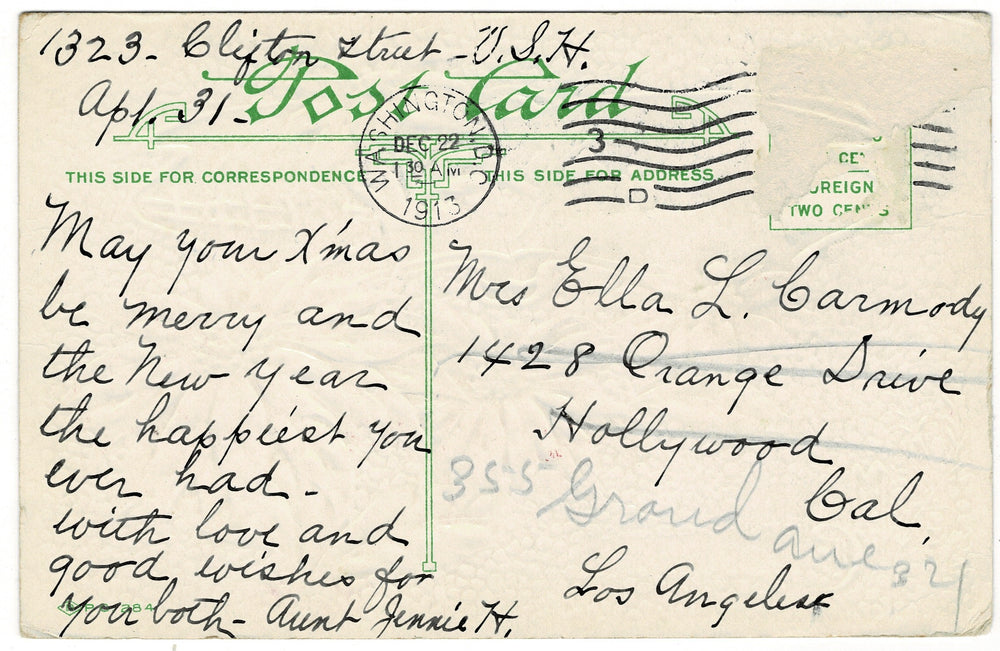 1323- Clifton Street - U.S.H.
Apt. 31-
Post Card
WASHINGTON, D.C.
DEC 22
1 30 AM
1913
3
D
THIS SIDE FOR CORRESPONDENCE
THIS SIDE FOR ADDRESS
FOREIGN
TWO CENTS
May your X'mas
be merry and
the New Year
the happiest you
ever had -
with love and
good wishes for
you both - Aunt Jennie H.
Mrs Ella L. Carmody
1428 Orange Drive
Hollywood
Cal.
355 Grand ave
Los Angeles
284